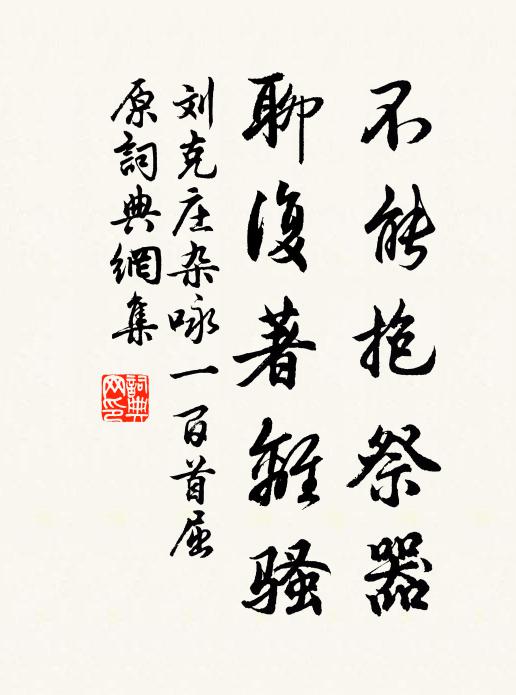 不能抱祭器
聊復著離騷
刘克庄杂咏一百首屈
原詞典網集
詞典网印